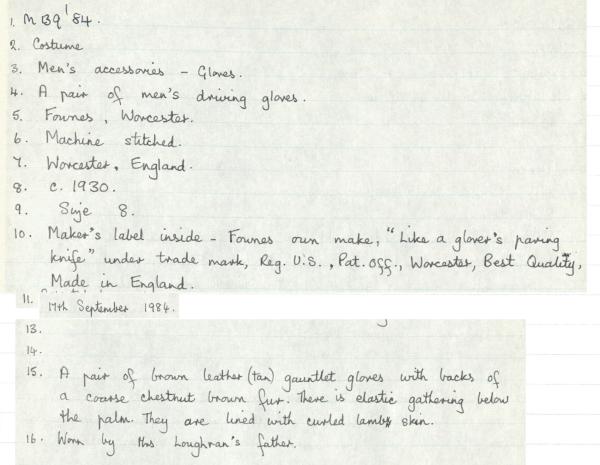 1. MBq '84.
2. Costume
3. Men's accessories - Gloves.
4. A pair of men's driving gloves.
5. Fownes, Worcester.
6. Machine stitched.
7. Worcester, England.
8. c. 1930.
9. Size 8.
10. Maker's label inside - Fownes own make, "Like a glover's paring
knife" under trade mark, Reg. U.S., Pat. Off., Worcester, Best Quality,
Made in England.
11. 17th September 1984.
13.
14.
15. A pair of brown leather (tan) gauntlet gloves with backs of
a coarse chestnut brown fur. There is elastic gathering below
the palm. They are lined with curled lamb skin.
16. Worn by Mrs Loughran's father.